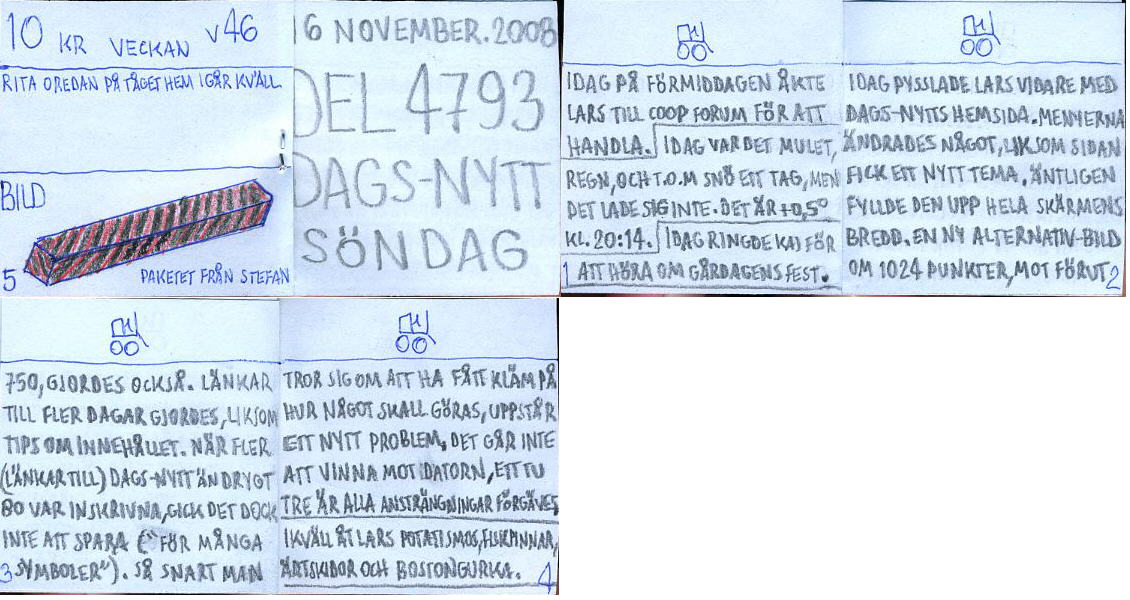 10 KR VECKAN v46
RITA OREDAN PÅ TÅGET HEM IGÅR KVÄLL
BILD
5 PAKETET FRÅN STEFAN
16 NOVEMBER.2008
DEL 4793
DAGS-NYTT
SÖNDAG
IDAG PÅ FÖRMIDDAGEN ÅKTE
LARS TILL COOP FORUM FÖR ATT
HANDLA. IDAG VAR DET MULET,
REGN, OCH T.O.M SNÖ ETT TAG, MEN
DET LADE SIG INTE. DET ÄR +0,5°
KL. 20:14. IDAG RINGDE KAJ FÖR
1 ATT HÖRA OM GÅRDAGENS FEST.
IDAG PYSSLADE LARS VIDARE MED
DAGS-NYTTS HEMSIDA. MENYERNA
ÄNDRADES NÅGOT, LIKSOM SIDAN
FICK ETT NYTT TEMA. ÄNTLIGEN
FYLLDE DEN UPP HELA SKÄRMENS
BREDD. EN NY ALTERNATIV-BILD
OM 1024 PUNKTER, MOT FÖRUT 2
750, GJORDES OCKSÅ. LÄNKAR
TILL FLER DAGAR GJORDES, LIKSOM
TIPS OM INNEHÅLLET. NÄR FLER
(LÄNKAR TILL) DAGS-NYTT ÄN DRYGT
80 VAR INSKRIVNA, GICK DET DOCK
INTE ATT SPARA ("FÖR MÅNGA
3 SYMBOLER"). SÅ SNART MAN
TROR SIG OM ATT HA FÅTT KLÄM PÅ
HUR NÅGOT SKALL GÖRAS, UPPSTÅR
ETT NYTT PROBLEM. DET GÅR INTE
ATT VINNA MOT DATORN, ETT TU
TRE ÄR ALLA ANSTRÄNGNINGAR FÖRGÄVES
IKVÄLL ÅT LARS POTATISMOS, FISKPINNAR,
ÄRTSKIDOR OCH BOSTONGURKA. 4